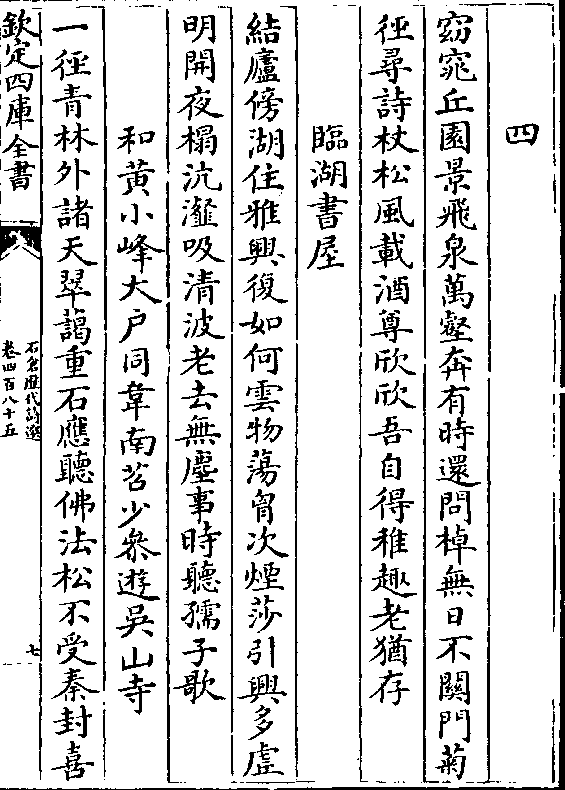 四
窈窕丘園景飛泉萬壑奔有時還問棹無日不關門菊
徑尋詩杖松風載酒尊欣欣吾自得稚趣老猶存
臨湖書屋
結廬傍湖住雅興復如何雲物蕩胷次煙莎引興多虛
明開夜榻沆瀣吸清波老去無塵事時聽孺子歌
和黄小峰大户同韋南苕少叅遊吳山寺
一徑青林外諸天翠藹重石應聽佛法松不受秦封喜
欽定四庫全書
石倉歷代詩選
卷四百八十五
七